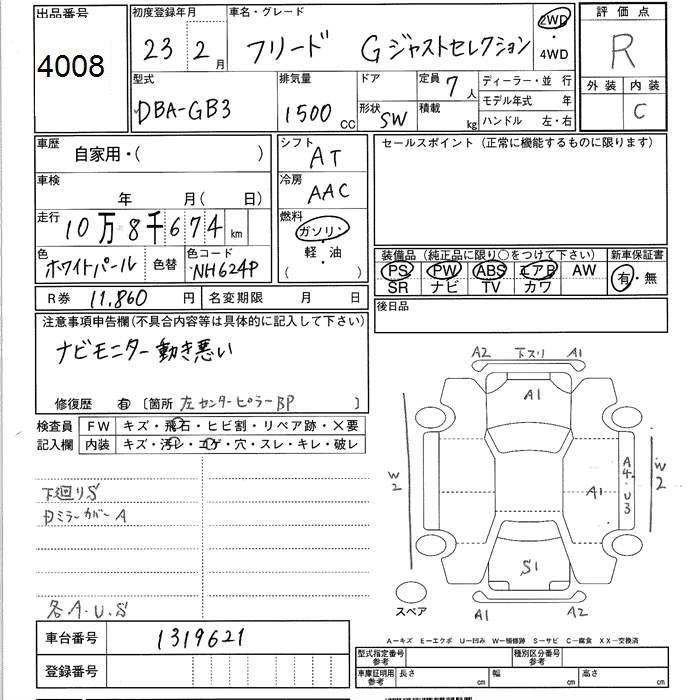 出品番号 初度登録年月 車名・グレード 評価点
4008 23年 2月 フリード Gジャストセレクション 2WD・4WD R
型式 排気量 ドア 定員 7人 ディーラー・並行 外装 内装
DBA-GB3 1500cc 形状 SW 積載 kg モデル年式 年 C
ハンドル 左・右
車歴 自家用・( ) シフト AT セールスポイント (正常に機能するものに限ります)
車検 年 月 ( 日) 冷房 AAC
走行 10万8千674km 燃料 ガソリン・
色 ホワイトパール 色替 色コード NH624P 軽・油 ( )
装備品 (純正品に限り○をつけて下さい) 新車保証書
PS PW ABS エアB AW 有・無
SR ナビ TV カワ
R券 11,860円 名変期限 月 日 後日品
注意事項申告欄 (不具合内容等は具体的に記入して下さい)
ナビモニター動き悪い
修復歴 有 〔箇所 左センターピラーBP 〕
検査員 FW キズ・飛石・ヒビ割・リペア跡・×要
記入欄 内装 キズ・汚レ・コゲ・穴・スレ・キレ・破レ
A2 下スリ A1
A1
W2 A1 A4・U3 W2
下廻りS
ミラーカバーA
S1
各A.U.S
スペア A1 A2
車台番号 1319621
登録番号
A-キズ E-エクボ U-凹み W-補修跡 S-サビ C-腐食 XX-交換済
型式指定番号 参考 種別区分番号 参考
車庫証明用 参考 長さ cm 幅 cm 高さ cm